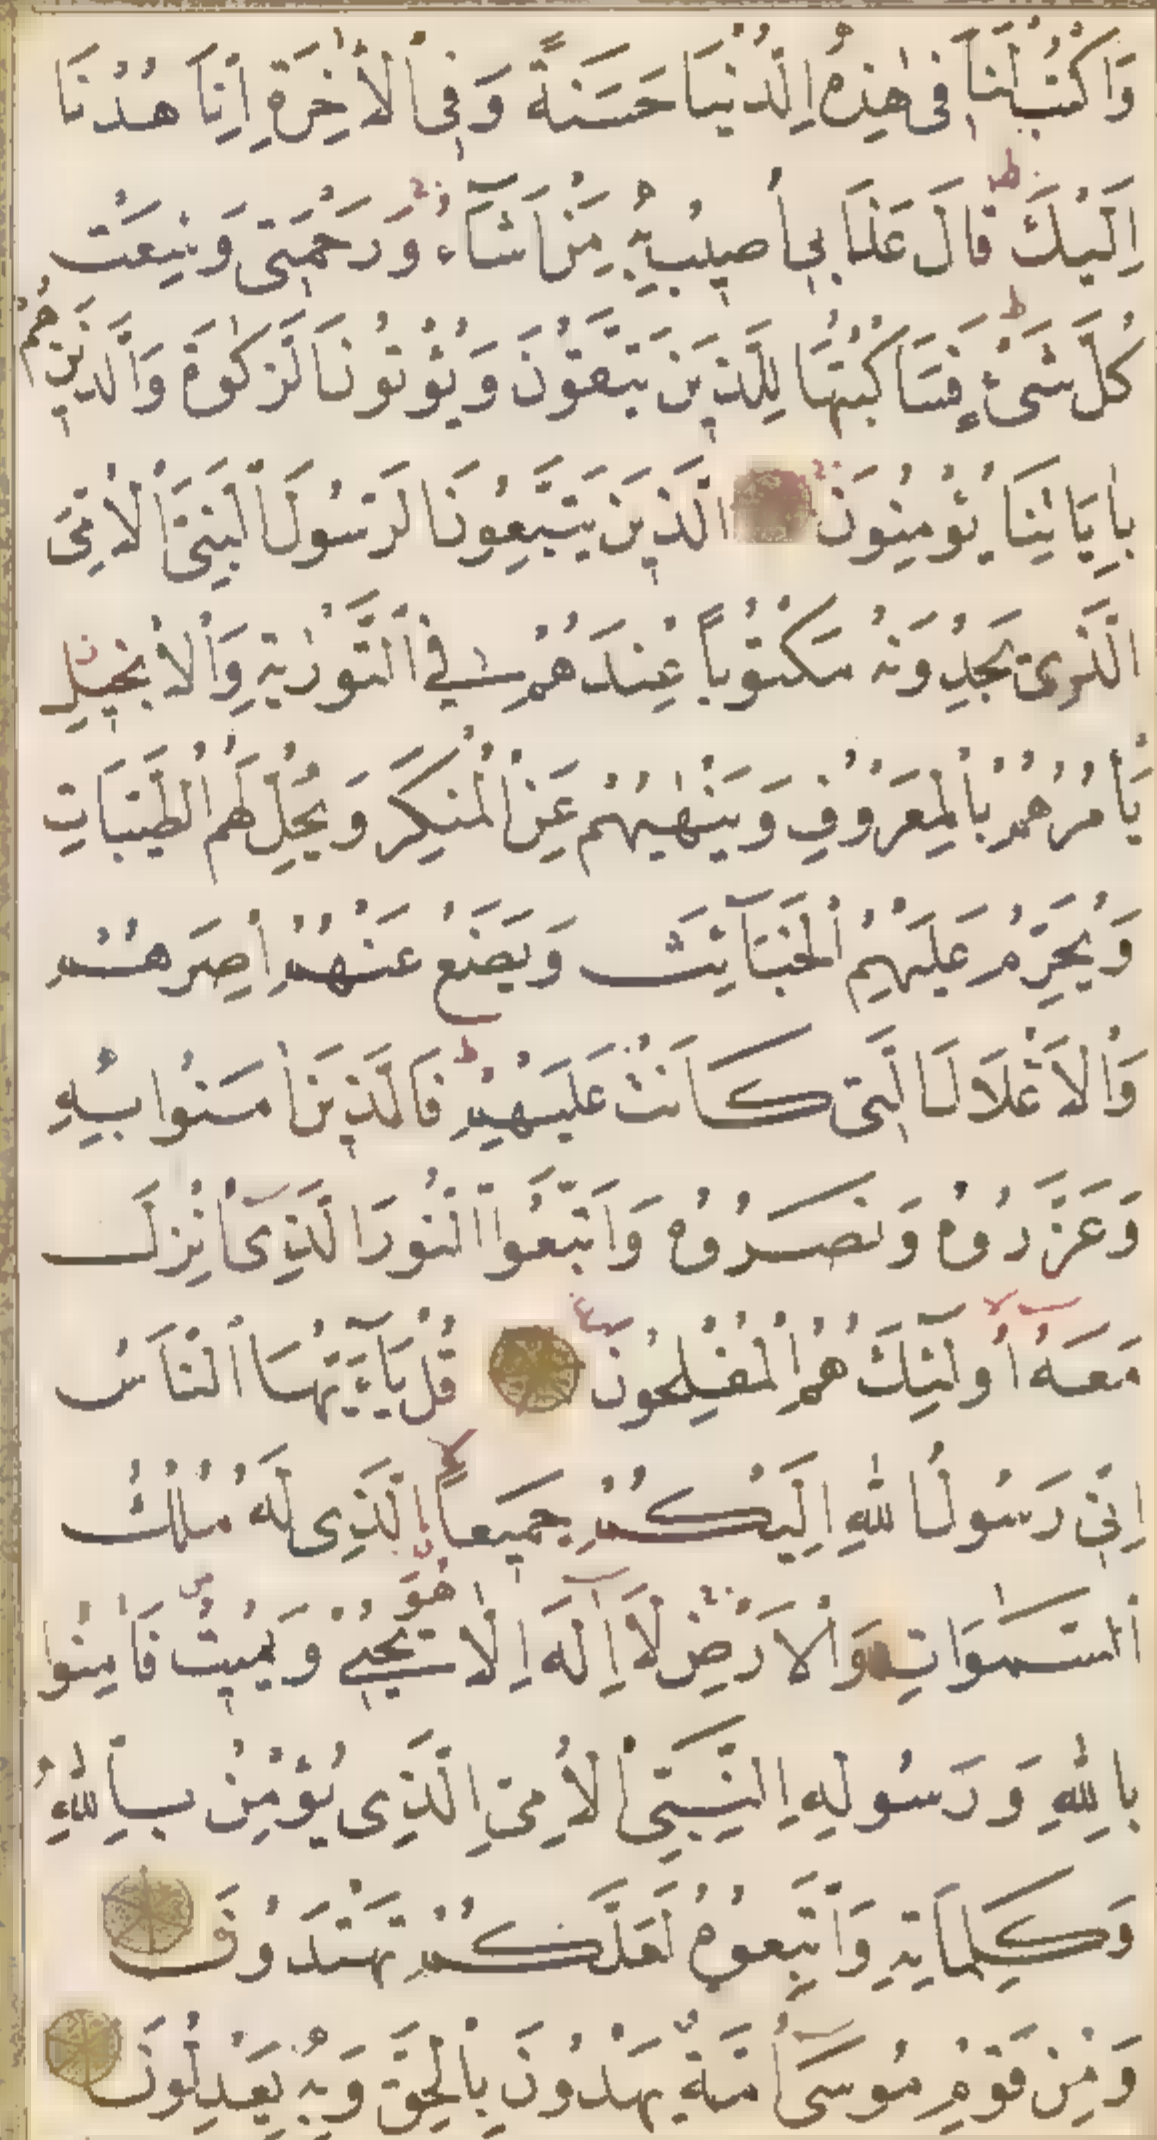 وَاكْتُبْ لَنَا فِي هٰذِهِ الدُّنْيَا حَسَنَةً وَفِي الْاٰخِرَةِ اِنَّا هُدْنَا
اِلَيْكَ ط قَالَ عَذَابِي اُصِيبُ بِهِ مَنْ اَشَآءُ وَرَحْمَتِي وَسِعَتْ
كُلَّ شَيْءٍ ط فَسَاَكْتُبُهَا لِلَّذِينَ يَتَّقُونَ وَيُؤْتُونَ الزَّكٰوةَ وَالَّذِينَ هُمْ
بِاٰيَاتِنَا يُؤْمِنُونَ الَّذِينَ يَتَّبِعُونَ الرَّسُولَ النَّبِيَّ الْاُمِّيَّ
الَّذِي يَجِدُونَهُ مَكْتُوبًا عِنْدَهُمْ فِي التَّوْرٰيةِ وَالْاِنْجِيلِ
يَأْمُرُهُمْ بِالْمَعْرُوفِ وَيَنْهٰيهُمْ عَنِ الْمُنْكَرِ وَيُحِلُّ لَهُمُ الطَّيِّبَاتِ
وَيُحَرِّمُ عَلَيْهِمُ الْخَبَآئِثَ وَيَضَعُ عَنْهُمْ اِصْرَهُمْ
وَالْاَغْلَالَ الَّتِي كَانَتْ عَلَيْهِمْ ط فَالَّذِينَ اٰمَنُوا بِهِ
وَعَزَّرُوهُ وَنَصَرُوهُ وَاتَّبَعُوا النُّورَ الَّذِي اُنْزِلَ
مَعَهُ لا اُولٰٓئِكَ هُمُ الْمُفْلِحُونَ قُلْ يَآ اَيُّهَا النَّاسُ
اِنِّي رَسُولُ اللّٰهِ اِلَيْكُمْ جَمِيعًا لا الَّذِي لَهُ مُلْكُ
السَّمٰوَاتِ وَالْاَرْضِ لَآ اِلٰهَ اِلَّا هُوَ يُحْيِي وَيُمِيتُ ص فَاٰمِنُوا
بِاللّٰهِ وَرَسُولِهِ النَّبِيِّ الْاُمِّيِّ الَّذِي يُؤْمِنُ بِاللّٰهِ
وَكَلِمَاتِهِ وَاتَّبِعُوهُ لَعَلَّكُمْ تَهْتَدُونَ
وَمِنْ قَوْمِ مُوسٰى اُمَّةٌ يَهْدُونَ بِالْحَقِّ وَبِهِ يَعْدِلُونَ